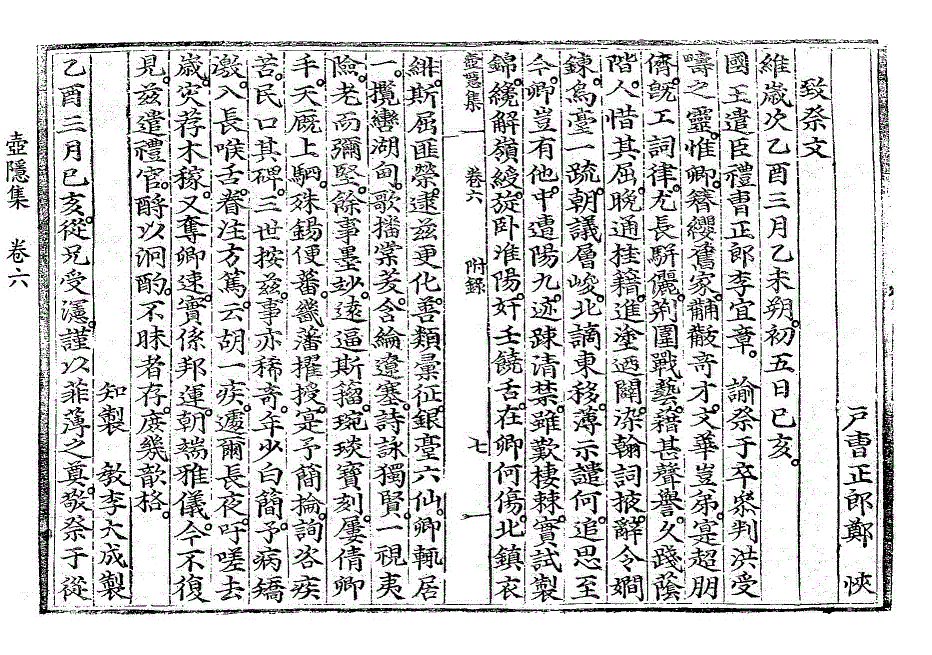 戶曹正郎鄭 悏
致祭文
維歲次乙酉三月乙未朔。初五日己亥。
國王遣臣禮曹正郎李宜章。 諭祭于卒參判洪受
疇之靈。惟卿。簪纓舊家。黼黻奇才。文華豈弟。寔超朋
儕。旣工詞律。尤長騈儷。荊圍戰藝。藉甚聲譽。久踐蔭
階。人惜其屈。晩通桂籍。進塗迺闢。染翰詞掖。辭令嫺
鍊。烏臺一疏。朝議層峻。北謫東移。薄示譴何。追思至
今。卿豈有他。中遭陽九。迹踈淸禁。雖歎棲棘。實試製
錦。纔解嶺綬。旋卧淮陽。奸壬饒舌。在卿何傷。北鎭衣
壺隱集 卷六 附錄 七
緋。斯屈匪榮。逮玆更化。善類彙征。銀臺六仙。卿輒居
一。攬轡湖甸。歌播棠茇。含綸遼塞。詩詠獨賢。一視夷
險。老而彌堅。餘事墨妙。遠逼斯籀。琬琰寶刻。屢倩卿
手。天廐上駟。殊錫便蕃。畿藩擢授。寔予簡掄。詢咨疾
苦。民口其碑。三世按玆。事亦稀奇。年少白簡。予病矯
激。入長喉舌。眷注方篤。云胡一疾。遽爾長夜。吁嗟去
歲。灾荐木稼。又奪卿速。實係邦運。朝端雅儀。今不復
見。玆遣禮官。酹以泂酌。不昧者存。庶幾歆格。
知製 敎李大成製
乙酉二月已亥。從兄受瀗。謹以菲薄之奠。敬祭于從
壺隱集 卷六